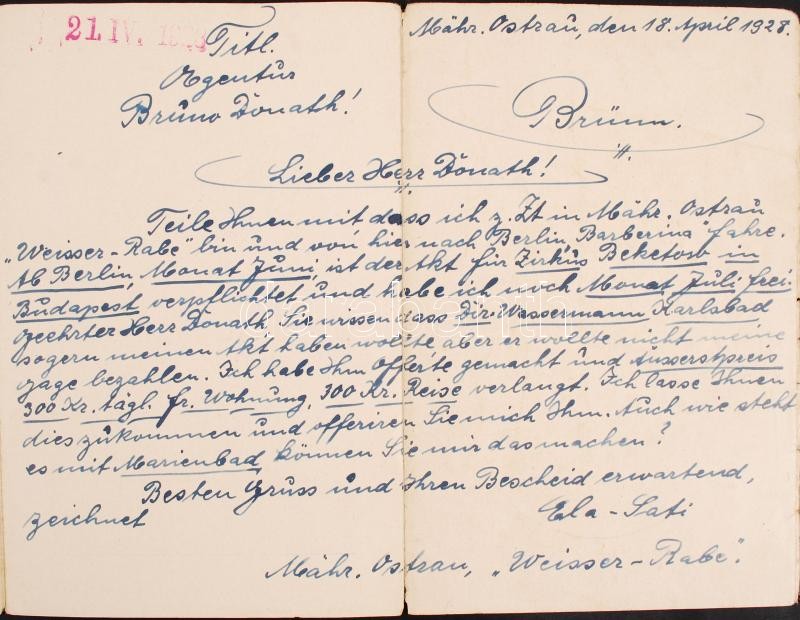 21. IV. 1928
Mähr. Ostrau, den 18. April 1928.
Titl.
Agentur
Bruno Donath!
Brünn.
Lieber Herr Donath!
Teile Ihnen mit dass ich z. Zt in Mähr. Ostrau
"Weisser-Rabe" bin und von hier nach Berlin "Barberina" fahre.
Ab Berlin, Monat Juni, ist der Akt für Zirkus Beketow in
Budapest verpflichtet und habe ich noch Monat Juli frei.
Geehrter Herr Donath, Sie wissen dass Dir. Wassermann Karlsbad
so gern meinen Akt haben wollte aber er wollte nicht meine
Gage bezahlen. Ich habe Ihm Offerte gemacht und Ausserstpreis
300 Kr. tägl. fr. Wohnung, 300 Kr. Reise verlangt. Ich lasse Ihnen
dies zukommen und offeriren Sie mich Ihm. Auch wie steht
es mit Marienbad, können Sie mir das machen?
Besten Gruss und Ihren Bescheid erwartend,
zeichnet
Ela-Sati
Mähr. Ostrau, "Weisser-Rabe".
darabanth